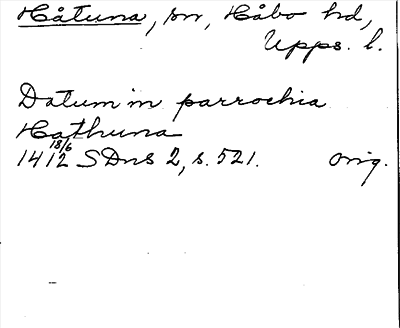 Håtuna, sn, Håbo hd,
Upps. l.
Datum in parrochia
Hathuna
1412 18/6 SDns 2, s. 521. Orig.